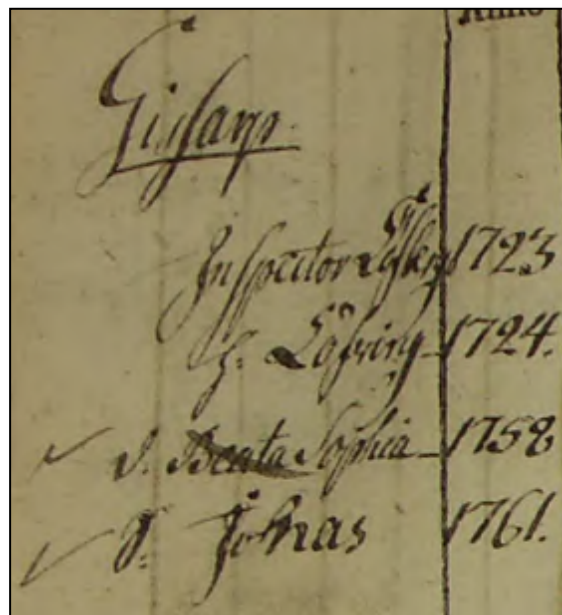 Anno
Inspector 1723
h. Löfving 1724.
d. Beata Sophia 1758
S. Johas 1761.